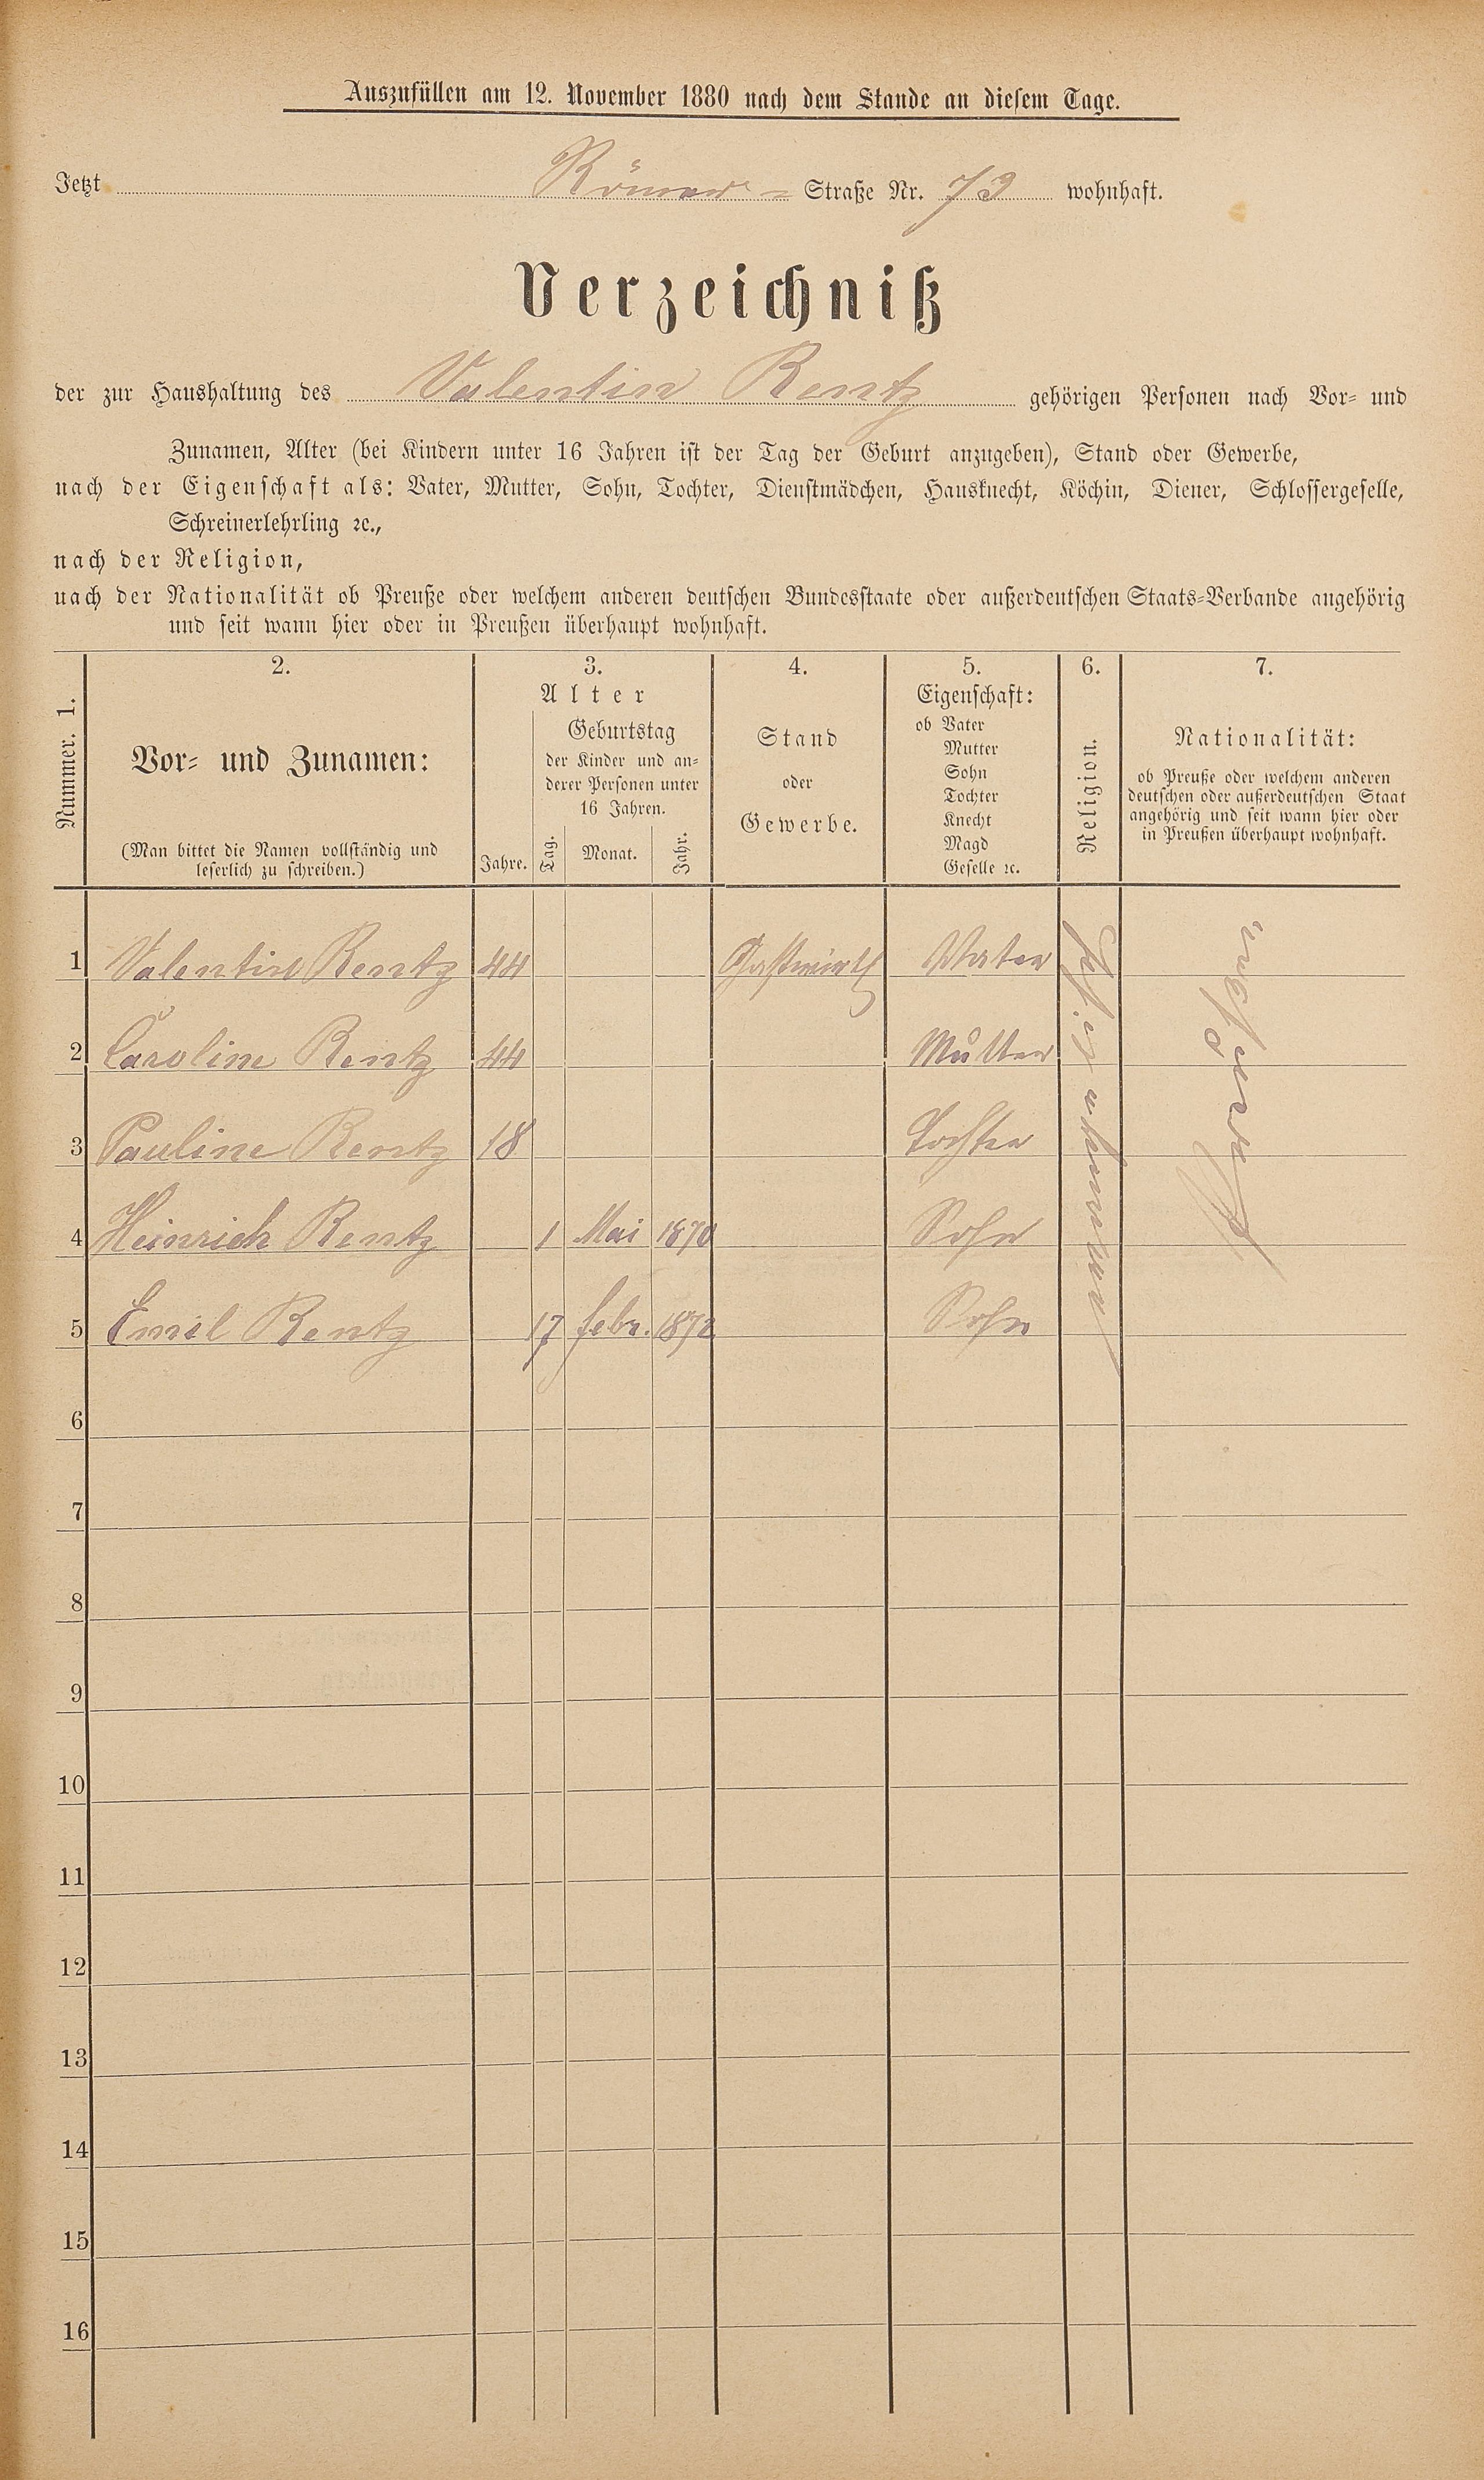 Auszufüllen am 12. November 1880 nach dem Stande an diesem Tage.
Jetzt Römer- Straße Nr. 73 wohnhaft.
Verzeichniß
der zur Haushaltung des Valentin Rentz gehörigen Personen nach Vor- und
Zunamen, Alter (bei Kindern unter 16 Jahren ist der Tag der Geburt anzugeben), Stand oder Gewerbe,
nach der Eigenschaft als: Vater, Mutter, Sohn, Tochter, Dienstmädchen, Hausknecht, Köchin, Diener, Schlossergeselle,
Schreinerlehrling ꝛc.,
nach der Religion,
nach der Nationalität ob Preuße oder welchem anderen deutschen Bundesstaate oder außerdeutschen Staats-Verbande angehörig
und seit wann hier oder in Preußen überhaupt wohnhaft.
Nummer. 1.
2.
Vor- und Zunamen:
(Man bittet die Namen vollständig und
leserlich zu schreiben.)
3.
Alter
Jahre.
Geburtstag
der Kinder und an-
derer Personen unter
16 Jahren.
Tag. Monat. Jahr.
4.
Stand
oder
Gewerbe.
5.
Eigenschaft:
ob Vater
Mutter
Sohn
Tochter
Knecht
Magd
Geselle ꝛc.
6.
Religion.
7.
Nationalität:
ob Preuße oder welchem anderen
deutschen oder außerdeutschen Staat
angehörig und seit wann hier oder
in Preußen überhaupt wohnhaft.
1 Valentin Rentz 44 Gastwirth Vater
2 Caroline Rentz 44 Mutter
3 Pauline Rentz 18 Tochter
4 Heinrich Rentz 1 Mai 1870 Sohn
5 Emil Rentz 17 Febr. 1872 Sohn
6
7
8
9
10
11
12
13
14
15
16